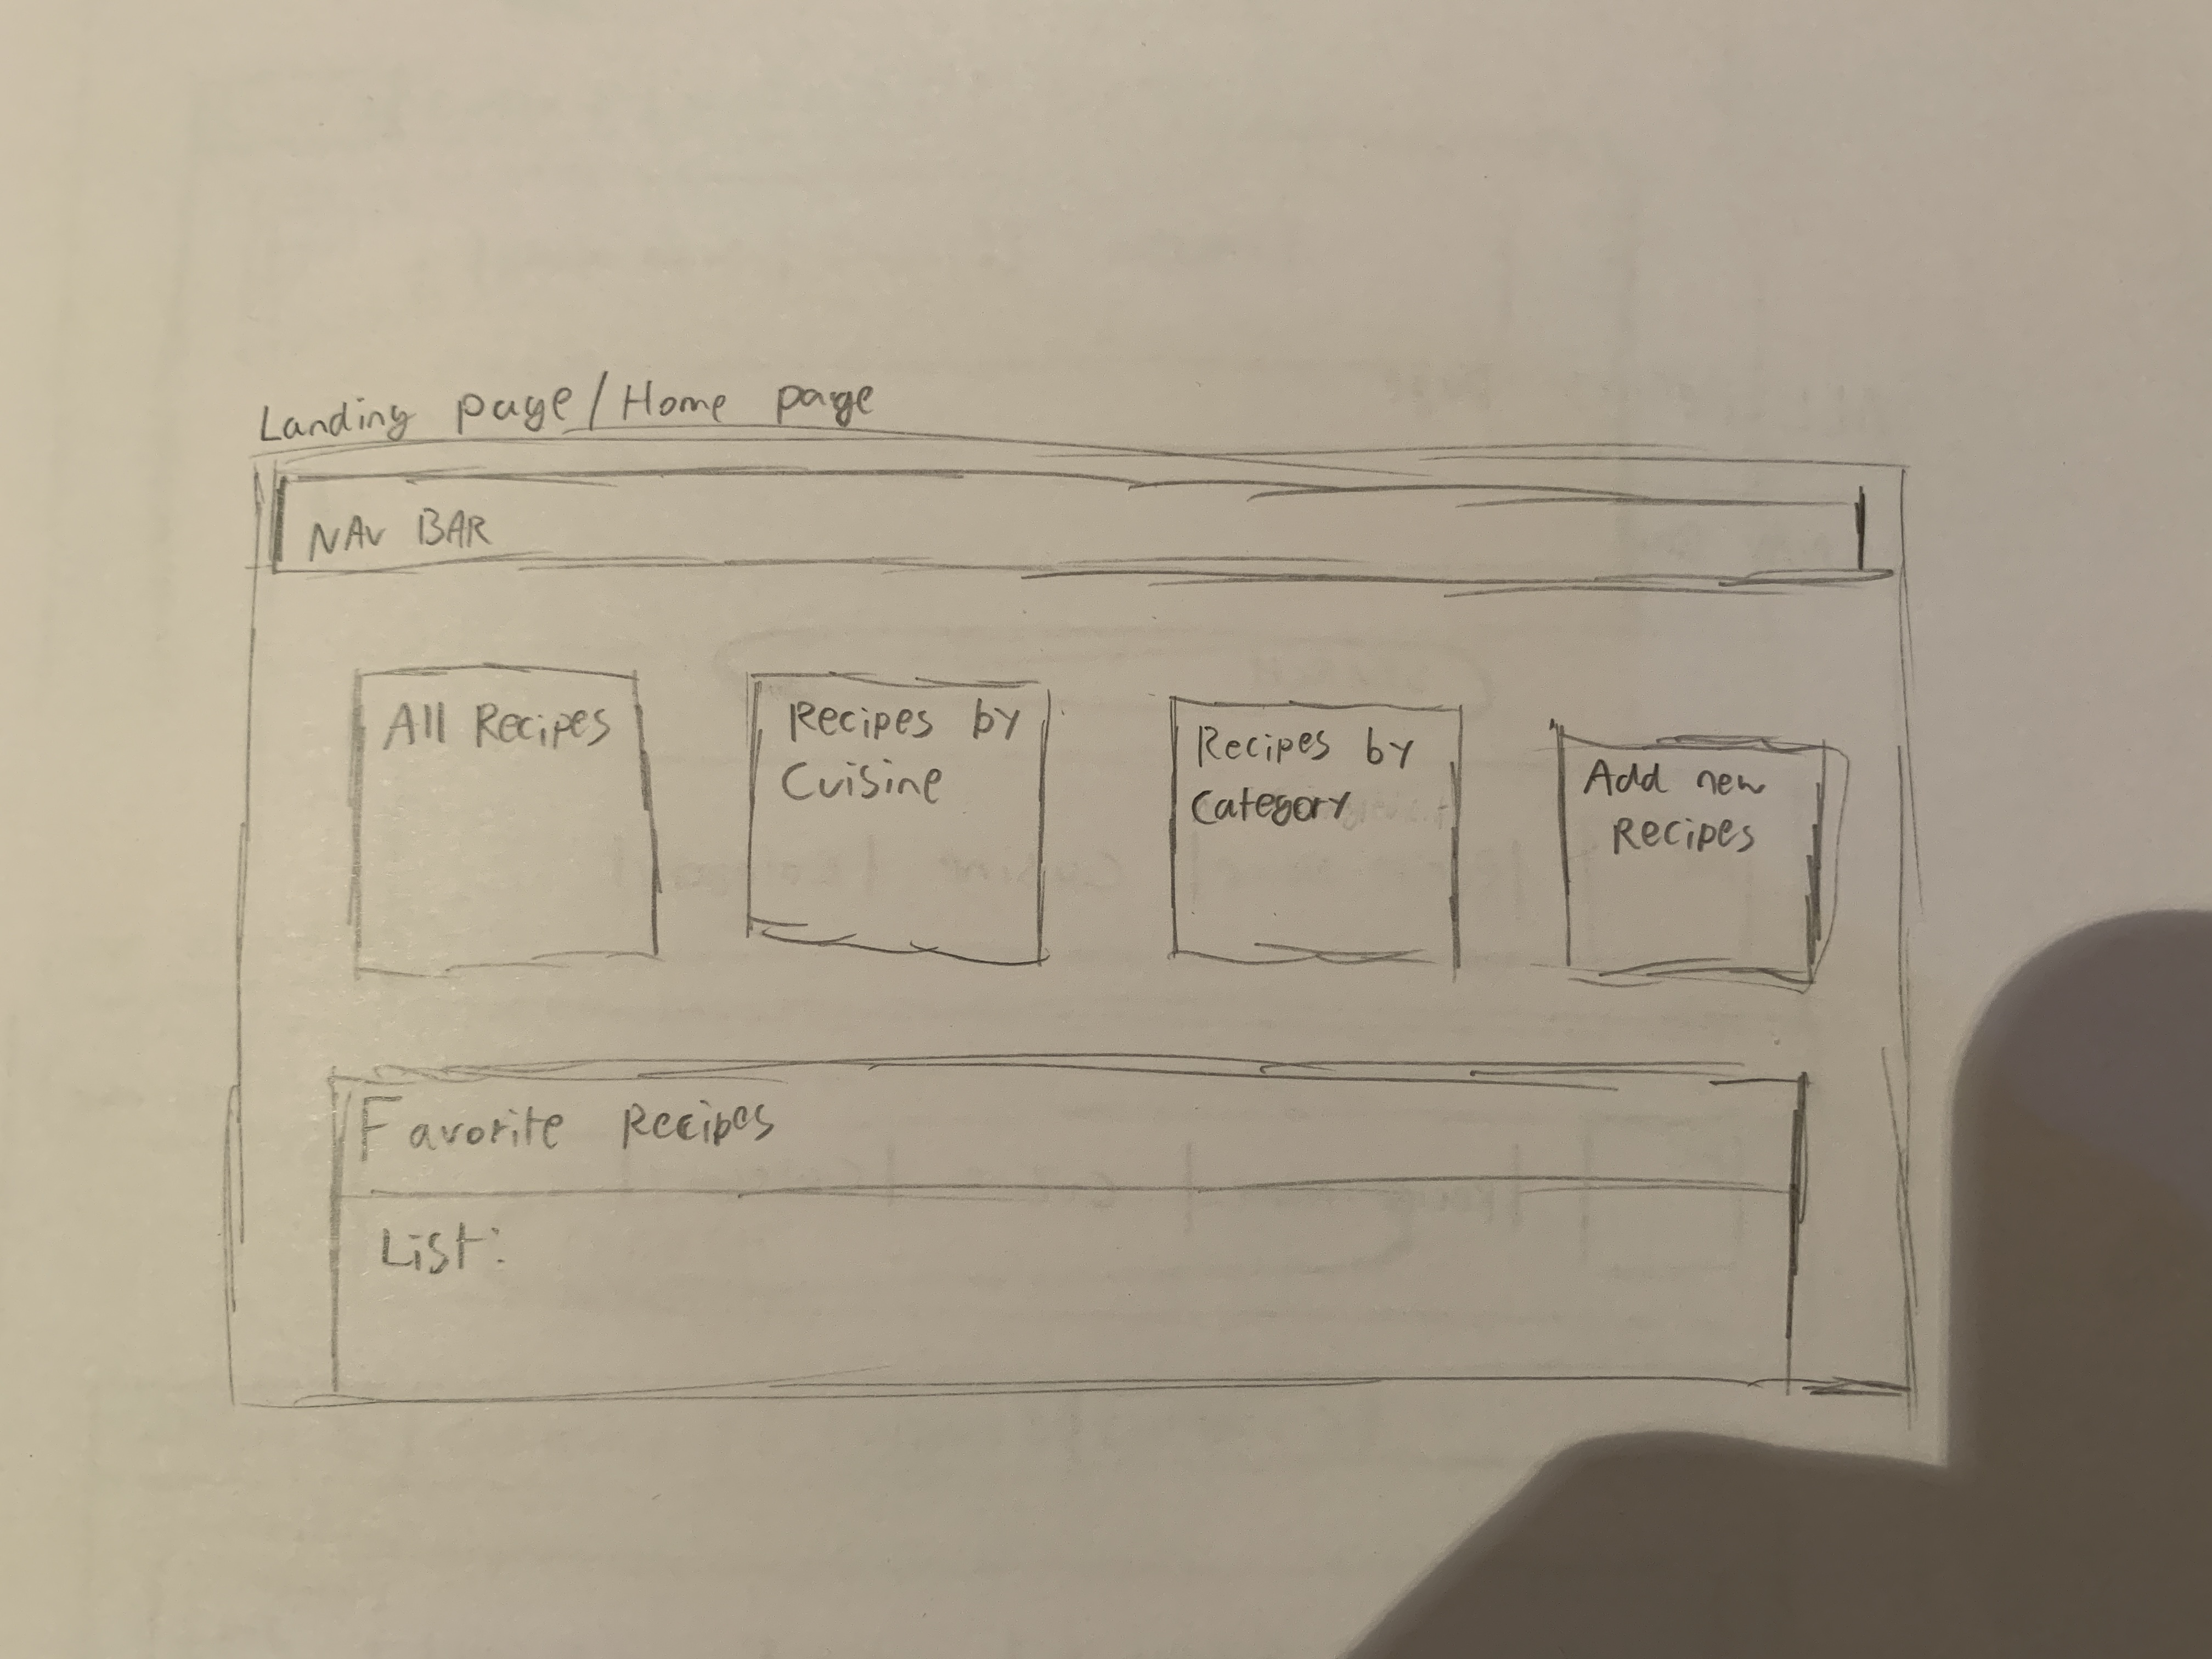 Landing page/Home page
NAv BAR
All Recipes
Recipes by
Cuisine
Recipes by
Category
Add new
Recipes
Favorite Recipes
List: